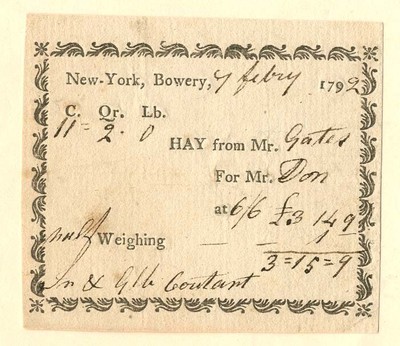 New-York, Bowery, 7 febry 1792
C. Qr. Lb.
11 = 2 . 0
HAY from Mr. Gates
For Mr. Don
at 6/6 £3 14 9
half Weighing — — 1
3 = 15 = 9
Jn & Glb Coutant